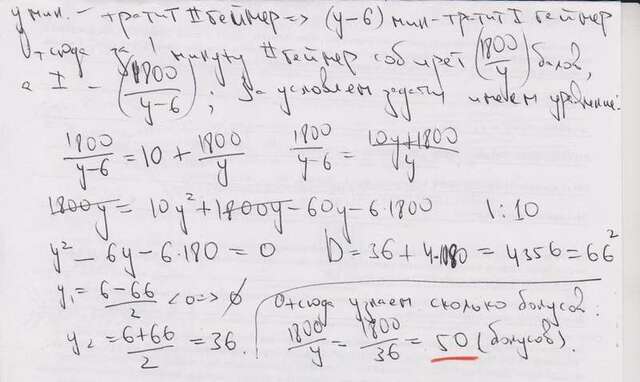 y мин. – тратит II геймер => (y-6) мин-тратит I геймер
отсюда за 1 минуту II геймер соберет (1800/y) балов,
а I – (1800/(y-6)); За условием задачи имеем уравнение:
1800/(y-6) = 10 + 1800/y 1800/(y-6) = (10y+1800)/y
1800y = 10y² + 1800y - 60y - 6·1800 |:10
y² - 6y - 6·180 = 0 D = 36 + 4·1080 = 4356 = 66²
y₁ = (6-66)/2 < 0 => ∅
Отсюда узнаем сколько бонусов:
y₂ = (6+66)/2 = 36. 1800/y = 1800/36 = 50 (бонусов).